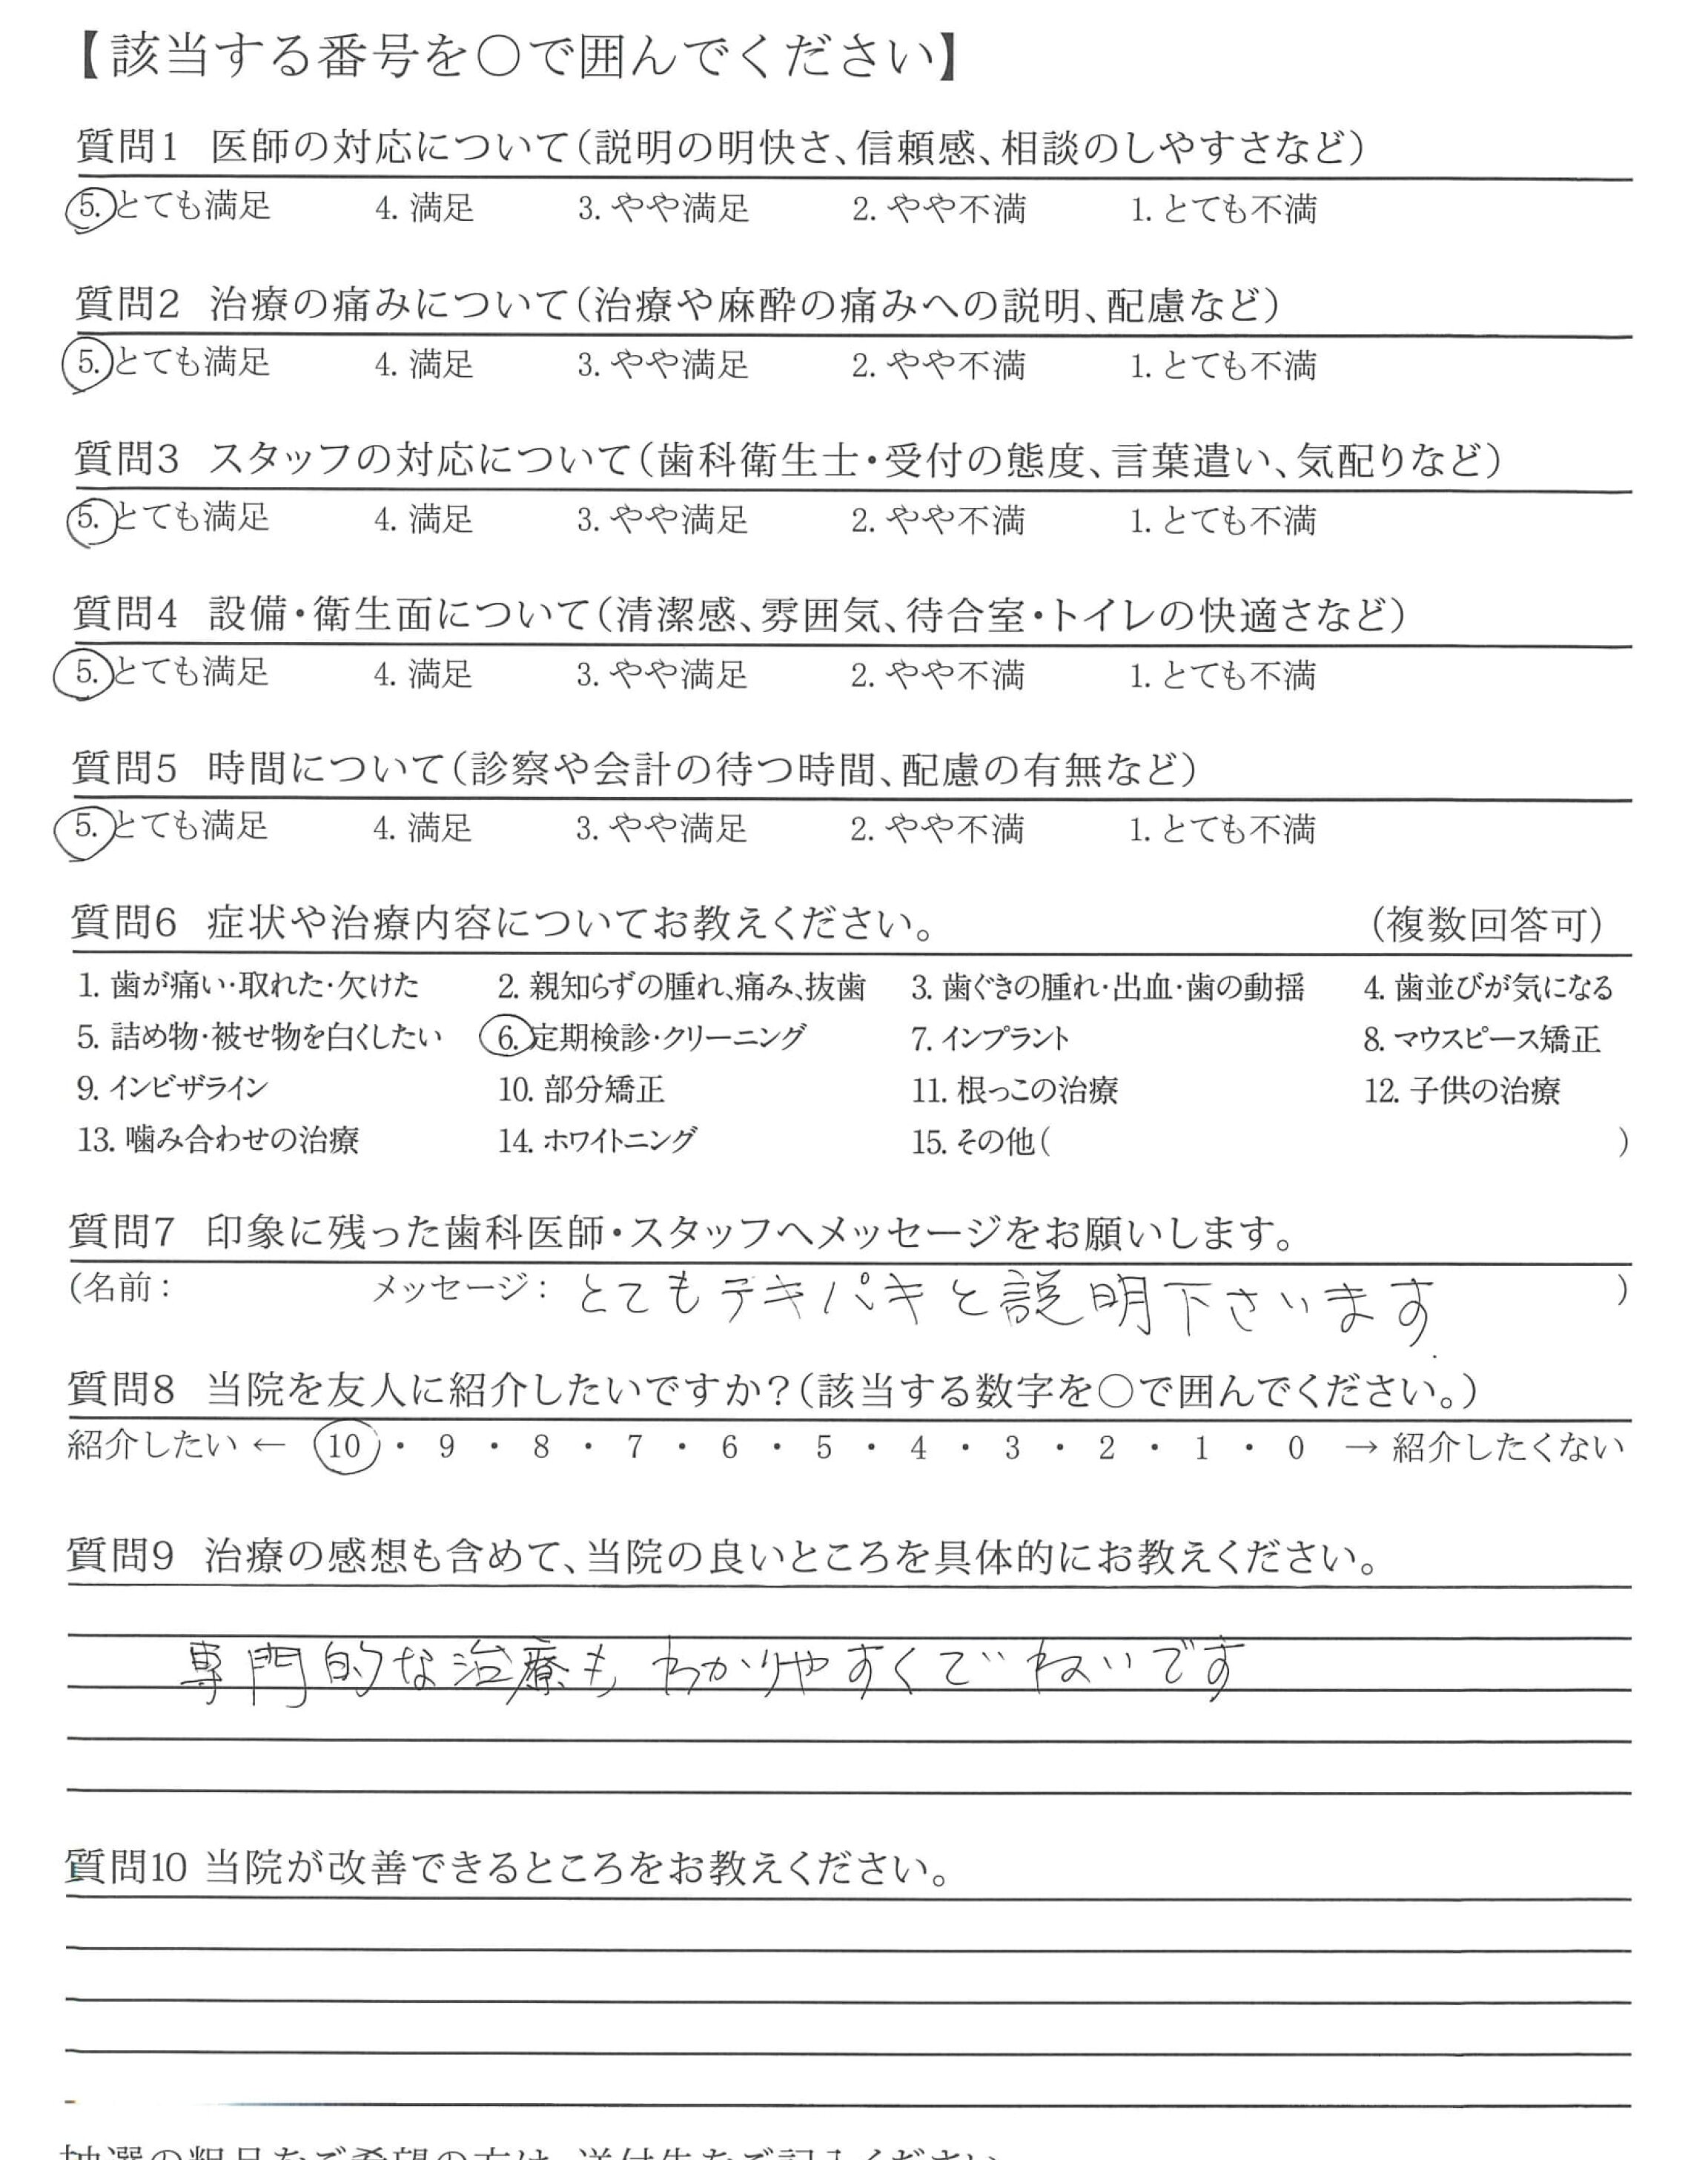 【該当する番号を○で囲んでください】
質問1 医師の対応について(説明の明快さ、信頼感、相談のしやすさなど)
5. とても満足 4. 満足 3. やや満足 2. やや不満 1. とても不満
質問2 治療の痛みについて(治療や麻酔の痛みへの説明、配慮など)
5. とても満足 4. 満足 3. やや満足 2. やや不満 1. とても不満
質問3 スタッフの対応について(歯科衛生士・受付の態度、言葉遣い、気配りなど)
5. とても満足 4. 満足 3. やや満足 2. やや不満 1. とても不満
質問4 設備・衛生面について(清潔感、雰囲気、待合室・トイレの快適さなど)
5. とても満足 4. 満足 3. やや満足 2. やや不満 1. とても不満
質問5 時間について(診察や会計の待つ時間、配慮の有無など)
5. とても満足 4. 満足 3. やや満足 2. やや不満 1. とても不満
質問6 症状や治療内容についてお教えください。 (複数回答可)
1. 歯が痛い・取れた・欠けた 2. 親知らずの腫れ、痛み、抜歯 3. 歯ぐきの腫れ・出血・歯の動揺 4. 歯並びが気になる
5. 詰め物・被せ物を白くしたい 6. 定期検診・クリーニング 7. インプラント 8. マウスピース矯正
9. インビザライン 10. 部分矯正 11. 根っこの治療 12. 子供の治療
13. 噛み合わせの治療 14. ホワイトニング 15. その他( )
質問7 印象に残った歯科医師・スタッフへメッセージをお願いします。
(名前: メッセージ: とてもテキパキと説明下さいます )
質問8 当院を友人に紹介したいですか?(該当する数字を○で囲んでください。)
紹介したい ← 10 ・ 9 ・ 8 ・ 7 ・ 6 ・ 5 ・ 4 ・ 3 ・ 2 ・ 1 ・ 0 → 紹介したくない
質問9 治療の感想も含めて、当院の良いところを具体的にお教えください。
専門的な治療も わかりやすくて゛ねいです
質問10 当院が改善できるところをお教えください。
抽選の粗品をご希望の方は、送付先をご記入ください